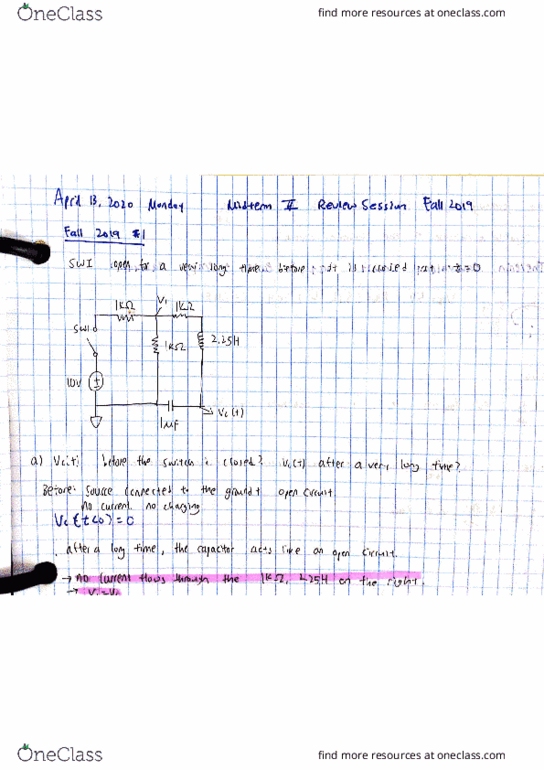 OneClass
find more resources at oneclass.com
April 13, 2020 Monday Midterm II Review Session Fall 2019
Fall 2019 #1
SW1 open for a very long time before it is closed at t=0
1KΩ V1 1KΩ
SW1
1KΩ 2.25H
10V
Vc(t)
1μF
a) Vc(t) before the switch is closed? Vc(t) after a very long time?
Before: Source connected to the ground + open circuit.
no current. no charging
Vc(t<0) = 0
after a long time, the capacitor acts like an open circuit.
→ no current flows through the 1KΩ, 2.25H on the right.
OneClass
find more resources at oneclass.com